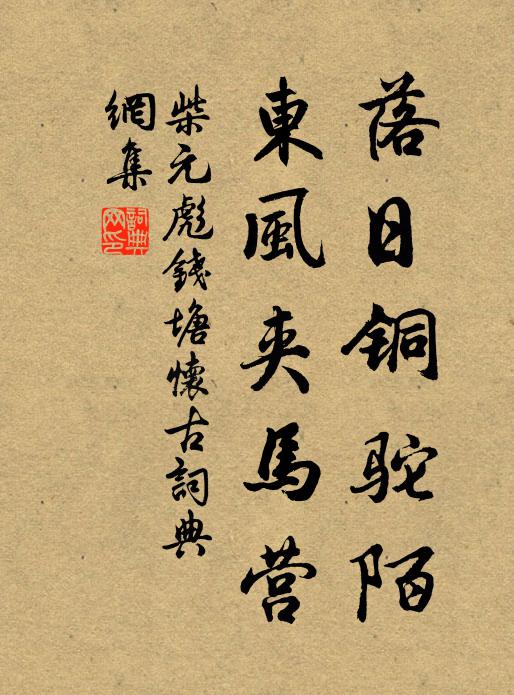 落日铜驼陌
東風夹馬营
柴元彪錢塘懷古詞典
網集
詞典
网印